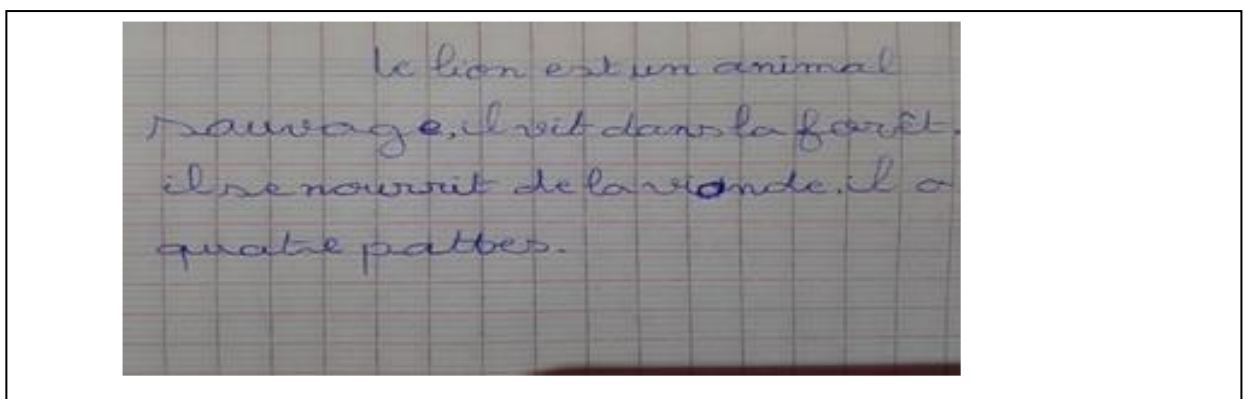 le lion est un animal
sauvage, il vit dans la forêt.
il se nourrit de la viande. il a
quatre pattes.